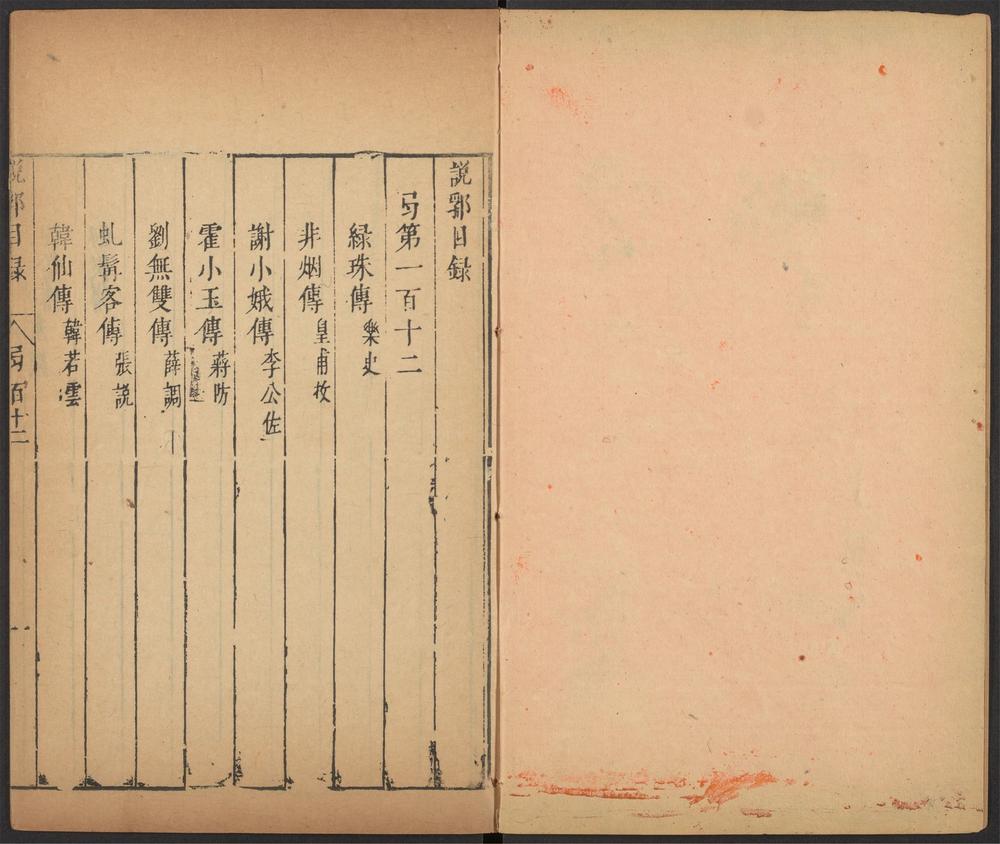 說郛目録
弓第一百十二
緑珠傳 樂史
非烟傳 皇甫枚
謝小娥傳 李公佐
霍小玉傳 蔣防
劉無雙傳 薛調
虬髯客傳 張說
韓仙傳 韓若雲
說郛目録 弓百十二 一